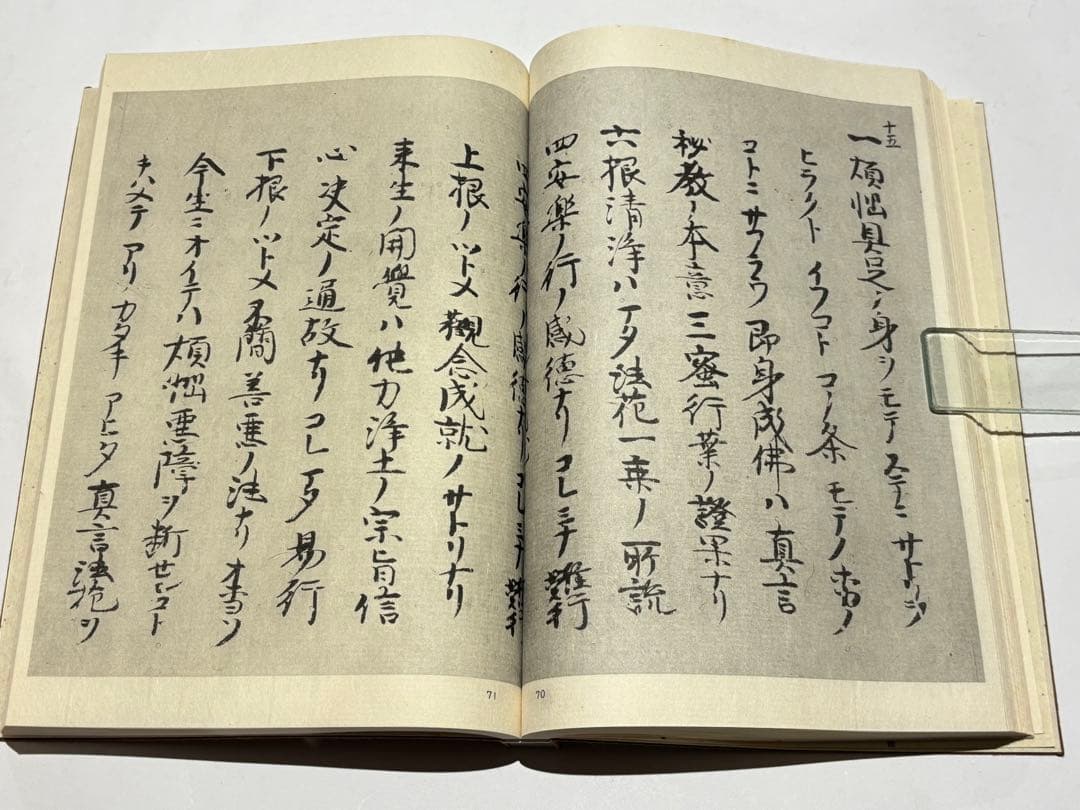 十五
一煩惱具足ノ身ヲモテステニサトリヲ
ヒラクトイフコトコノ条モテノホカノ
コトニサフラウ即身成佛ハ真言
秘教ノ本意三蜜行業ノ證果ナリ
六根清浄ハマタ法花一乗ノ所説
四安楽ノ行ノ感徳ナリコレミナ難行
70
四安楽ノ行ノ感徳ナリコレミナ難行
上根ノツトメ觀念成就ノサトリナリ
来生ノ開覺ハ他力浄土ノ宗旨信
心决定ノ通故ナリコレマタ易行
下根ノツトメ不簡善悪ノ法ナリオホヨソ
今生ニオイテハ煩惱悪障ヲ断センコト
キハメテアリカタキアヒタ真言法花ヲ
71